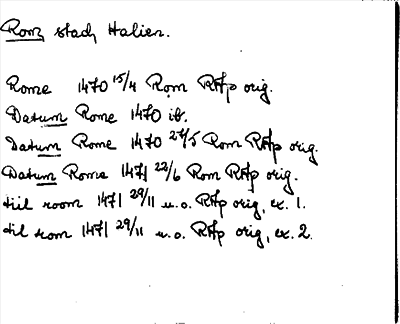 Rom, stad, Italien.
Rome 1470 15/4 Rom RAp orig.
Datum Rome 1470 ib.
Datum Rome 1470 27/5 Rom RAp orig.
Datum Rome 1471 22/6 Rom RAp orig.
till room 1471 29/11 u.o. RAp orig, ex. 1.
til rom 1471 29/11 u.o. RAp orig, ex. 2.